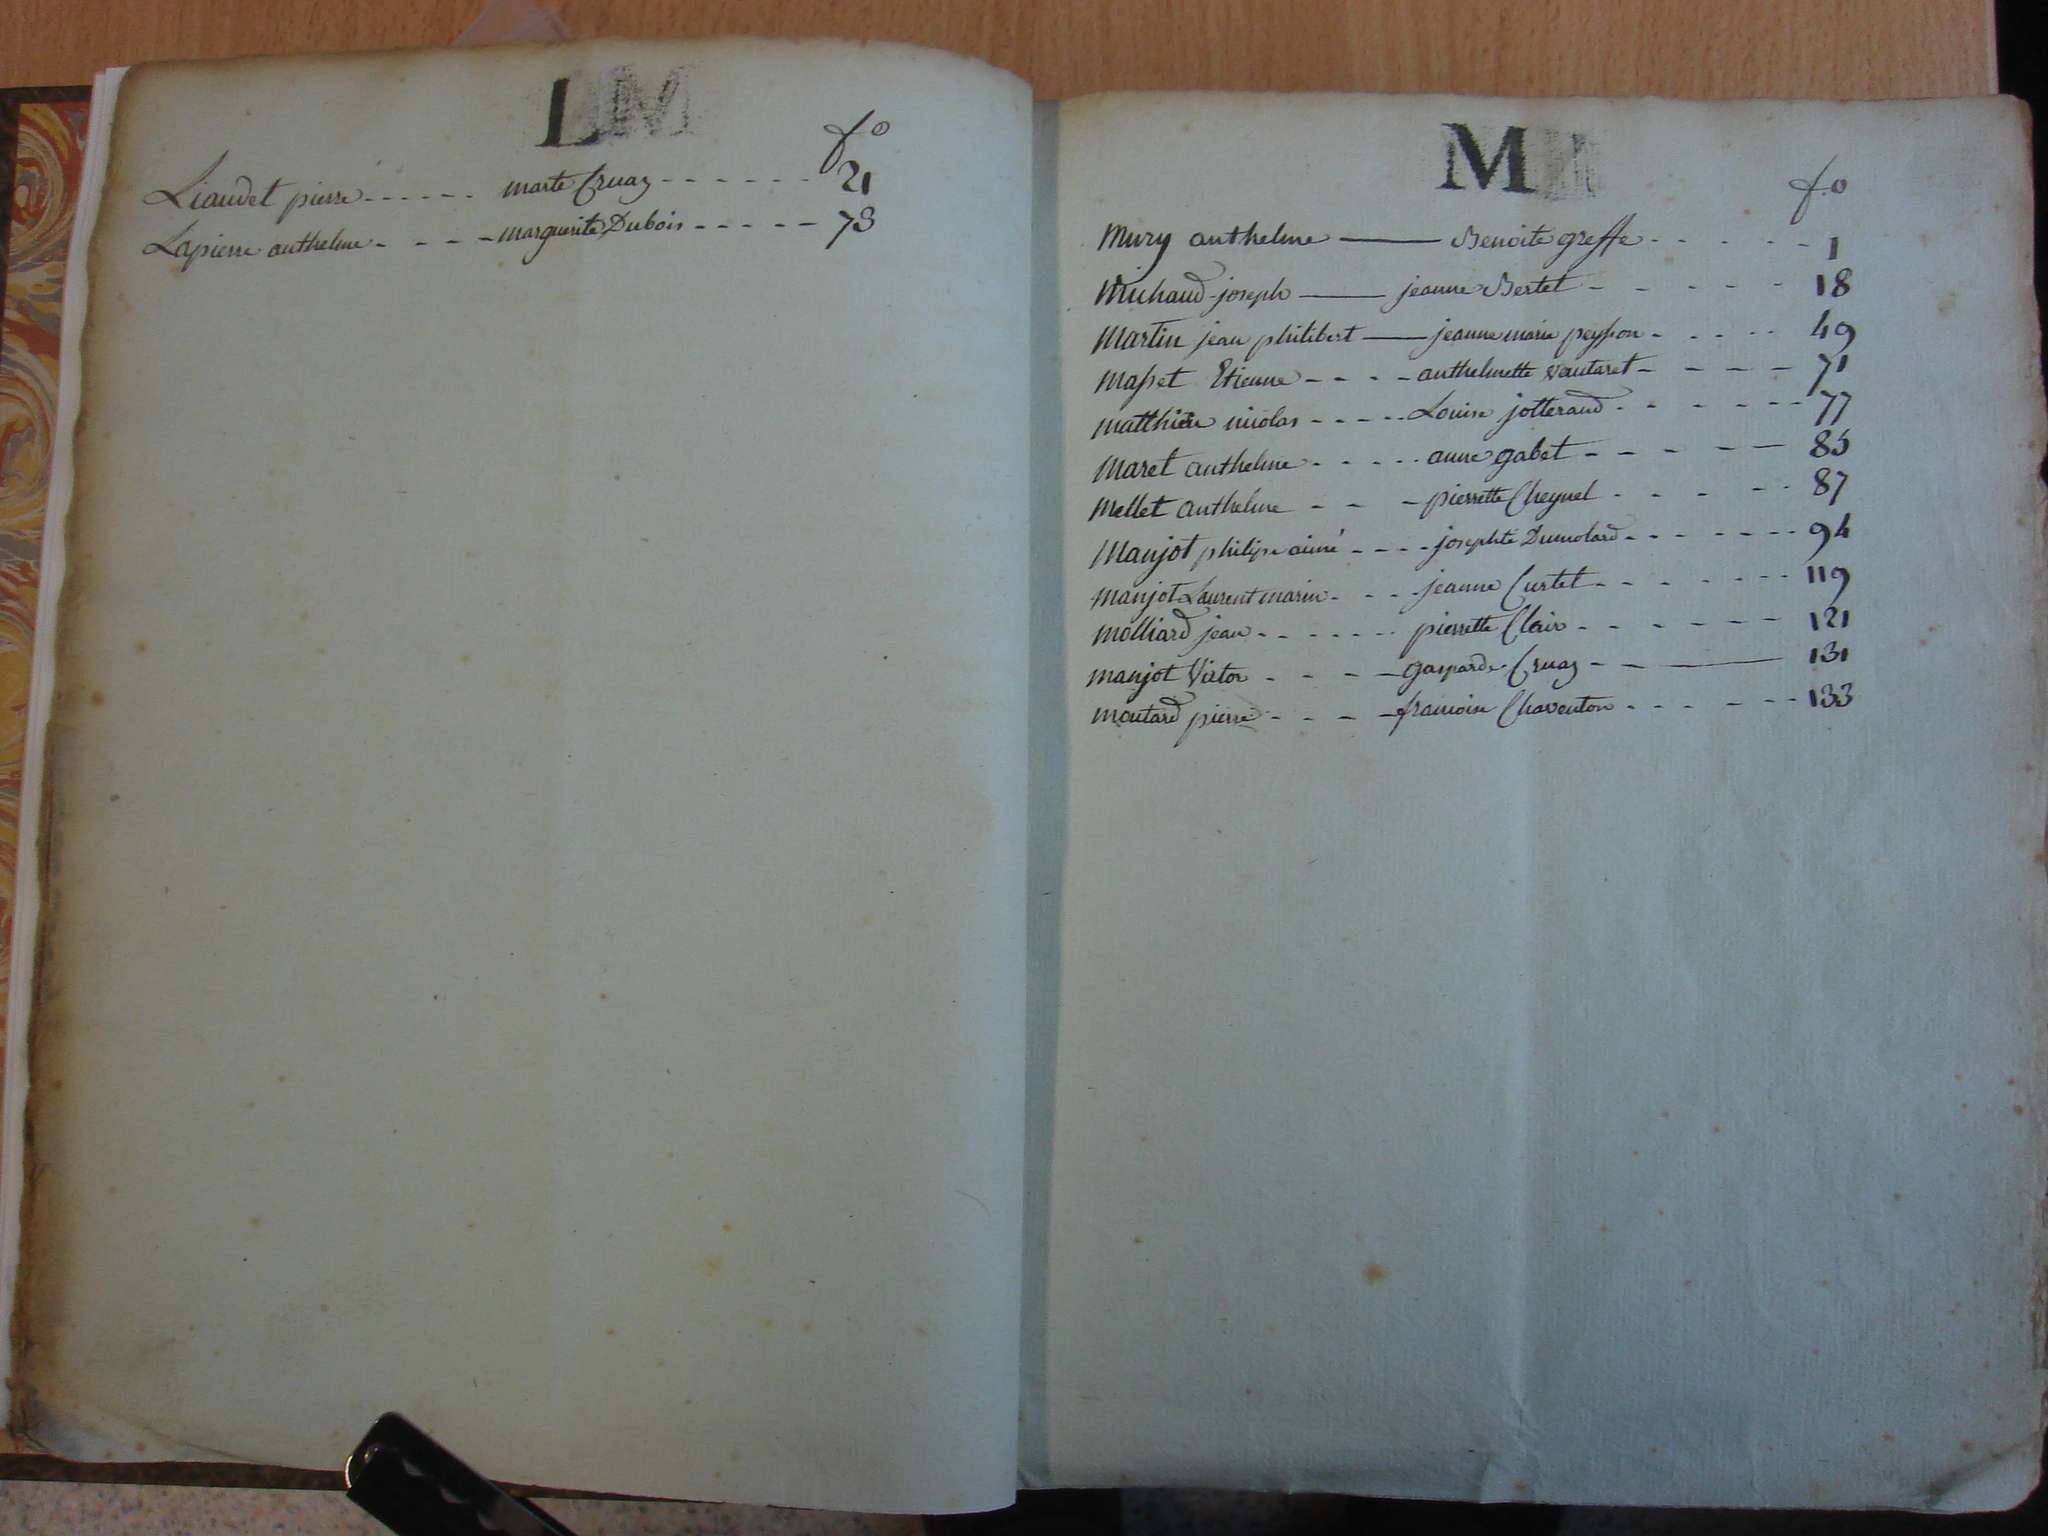 L
fo
Liaudet pierre ------ marte Cruaz ------ 21
Lapierre anthelme ---- marguerite Dubois ----- 73
M
f.o
Mury anthelme —— Benoite greffe ------ 1
Michaud joseph —— jeanne Bertet ----- 18
Martin jean philibert —— jeanne marie peysson ---- 49
Masset Etienne ---- anthelmette vautaret ----- 71
matthieu nicolas ----- Louise jotterand ------ 77
Maret anthelme ----- anne gabet ----- 85
Mellet anthelme --- pierrette Cheynel ----- 87
Manjot philipe aimé ---- josephte Dumolard ------- 94
manjot Laurent marin --- jeanne Curtet ------- 119
molliard jean ------- pierrette Clair ------ 121
manjot Victor ---- gasparde Cruaz --—— 131
moutard pierre ---- francoise Chaventon ------ 133